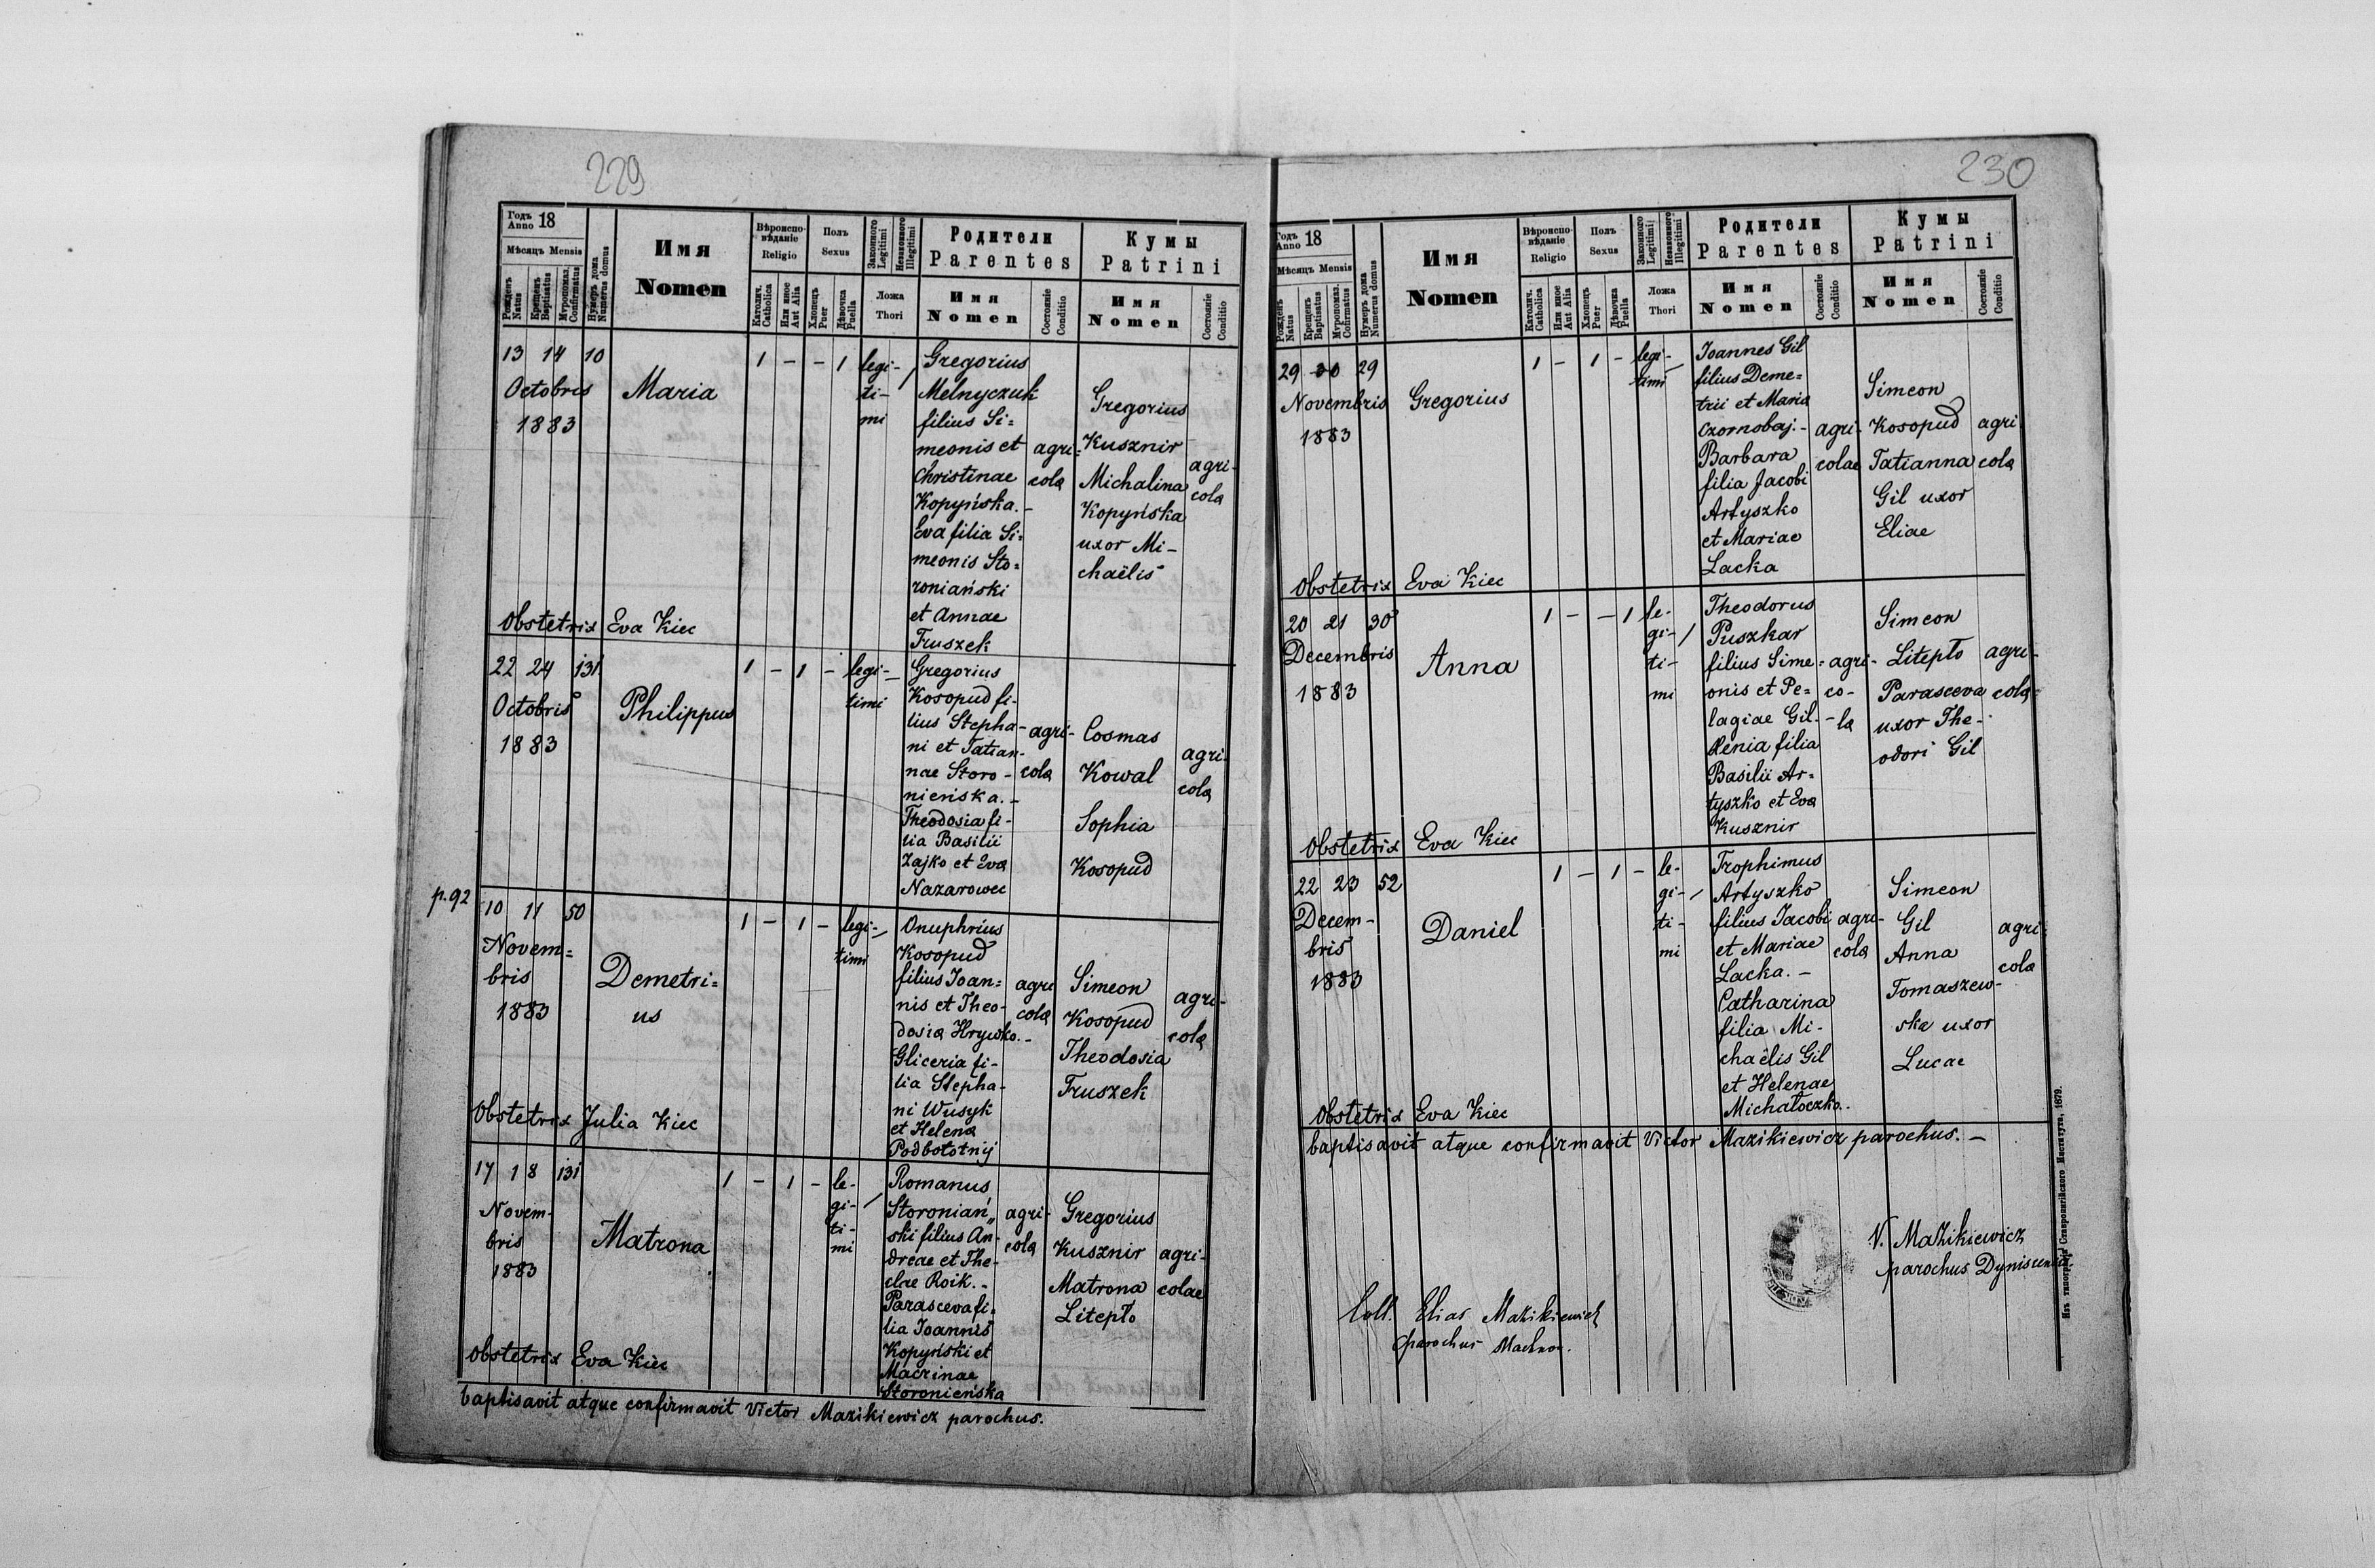 229
Годъ Anno 18
Мѣсяцъ Mensis
Рожденъ Natus
Крещенъ Baptisatus
Мѵропомаз. Confirmatus
Нумеръ дома Numerus domus
Имя
Nomen
Вѣроиспо-
вѣданіе
Religio
Католич. Catholica
Или иное Aut Alia
Полъ
Sexus
Хлопець Puer
Дѣвочка Puella
Законного Legitimi
Незаконного Illegitimi
Ложа
Thori
Родители
Parentes
Имя
Nomen
Состояніе Conditio
Кумы
Patrini
Имя
Nomen
Состояніе Conditio
13 14 10
Octobris
1883
Maria
1 - - 1
legi-
ti-
mi
Gregorius
Melnyczuk
filius Si=
meonis et
Christinae
Kopyńska.-
Eva filia Si=
meonis Sto=
roniański
et Annae
Truszek
agri=
cola
Gregorius
Kusznir
Michalina
Kopyńska
uxor Mi-
chaëlis
agri-
cola
Obstetrix Eva Kiec
22 24 131
Octobris
1883
Philippus
1 - 1 -
legi-
timi
Gregorius
Kosopud fi-
lius Stepha-
ni et Tatian-
nae Storo-
nieńska.-
Theodosia fi-
lia Basilii
Zajko et Eva
Nazarowec
agri-
cola
Cosmas
Kowal
Sophia
Kosopud
agri-
cola
p. 92
10 11 50
Novem=
bris
1883
Demetri=
us
1 - 1 -
legi-
timi
Onuphrius
Kosopud
filius Ioan=
nis et Theo-
dosia Hrywko.-
Gliceria fi-
lia Stepha-
ni Wusyk
et Helena
Podbołotnij
agri
cola
Simeon
Kosopud
Theodosia
Truszek
agri-
cola
Obstetrix Julia Kiec
17 18 131
Novem-
bris
1883
Matrona
1 - 1 -
le-
gi-
ti-
mi
Romanus
Storoniań„
ski filius An-
dreae et The-
clae Roik.-
Parasceva fi=
lia Ioannis
Kopyński et
Macrinae
Storonieńska
agri-
cola
Gregorius
Kusznir
Matrona
Litepło
agri-
colae
Obstetrix Eva Kiec
baptisavit atque confirmavit Victor Mazikiewicz parochus.
230
Годъ Anno 18
Мѣсяцъ Mensis
Рожденъ Natus
Крещенъ Baptisatus
Мѵропомаз. Confirmatus
Нумеръ дома Numerus domus
Имя
Nomen
Вѣроиспо-
вѣданіе
Religio
Католич. Catholica
Или иное Aut Alia
Полъ
Sexus
Хлопець Puer
Дѣвочка Puella
Законного Legitimi
Незаконного Illegitimi
Ложа
Thori
Родители
Parentes
Имя
Nomen
Состояніе Conditio
Кумы
Patrini
Имя
Nomen
Состояніе Conditio
29 30 29
Novembris
1883
Gregorius
1 - 1 -
legi-
timi
Ioannes Gil
filius Deme=
trii et Maria
Czornobaj.-
Barbara
filia Jacobi
Artyszko
et Mariae
Lacka
agri-
colae
Simeon
Kosopud
Tatianna
Gil uxor
Eliae
agri
cola
Obstetrix Eva Kiec
20 21 30
Decembris
1883
Anna
1 - - 1
le-
gi-
ti-
mi
Theodorus
Puszkar
filius Sime=
onis et Pe=
lagiae Gil.-
Xenia filia
Basilii Ar=
tyszko et Eva
Kusznir
agri-
co-
la
Simeon
Litepło
Parasceva
uxor The-
odori Gil
agri-
cola
Obstetrix Eva Kiec
22 23 52
Decem-
bris
1883
Daniel
1 - 1 -
le-
gi-
ti-
mi
Trophimus
Artyszko
filius Iacobi
et Mariae
Lacka.-
Catharina
filia Mi-
chaëlis Gil
et Helenae
Michałoczko.
agri-
cola
Simeon
Gil
Anna
Tomaszew-
ska uxor
Lucae
agri
cola
Obstetrix Eva Kiec
baptisavit atque confirmavit Victor Mazikiewicz parochus.-
V. Mazikiewicz
parochus
Coll. Elias Mazikiewicz
parochus Machnov.
Изъ типографіи Ставропигійского Института, 1879.